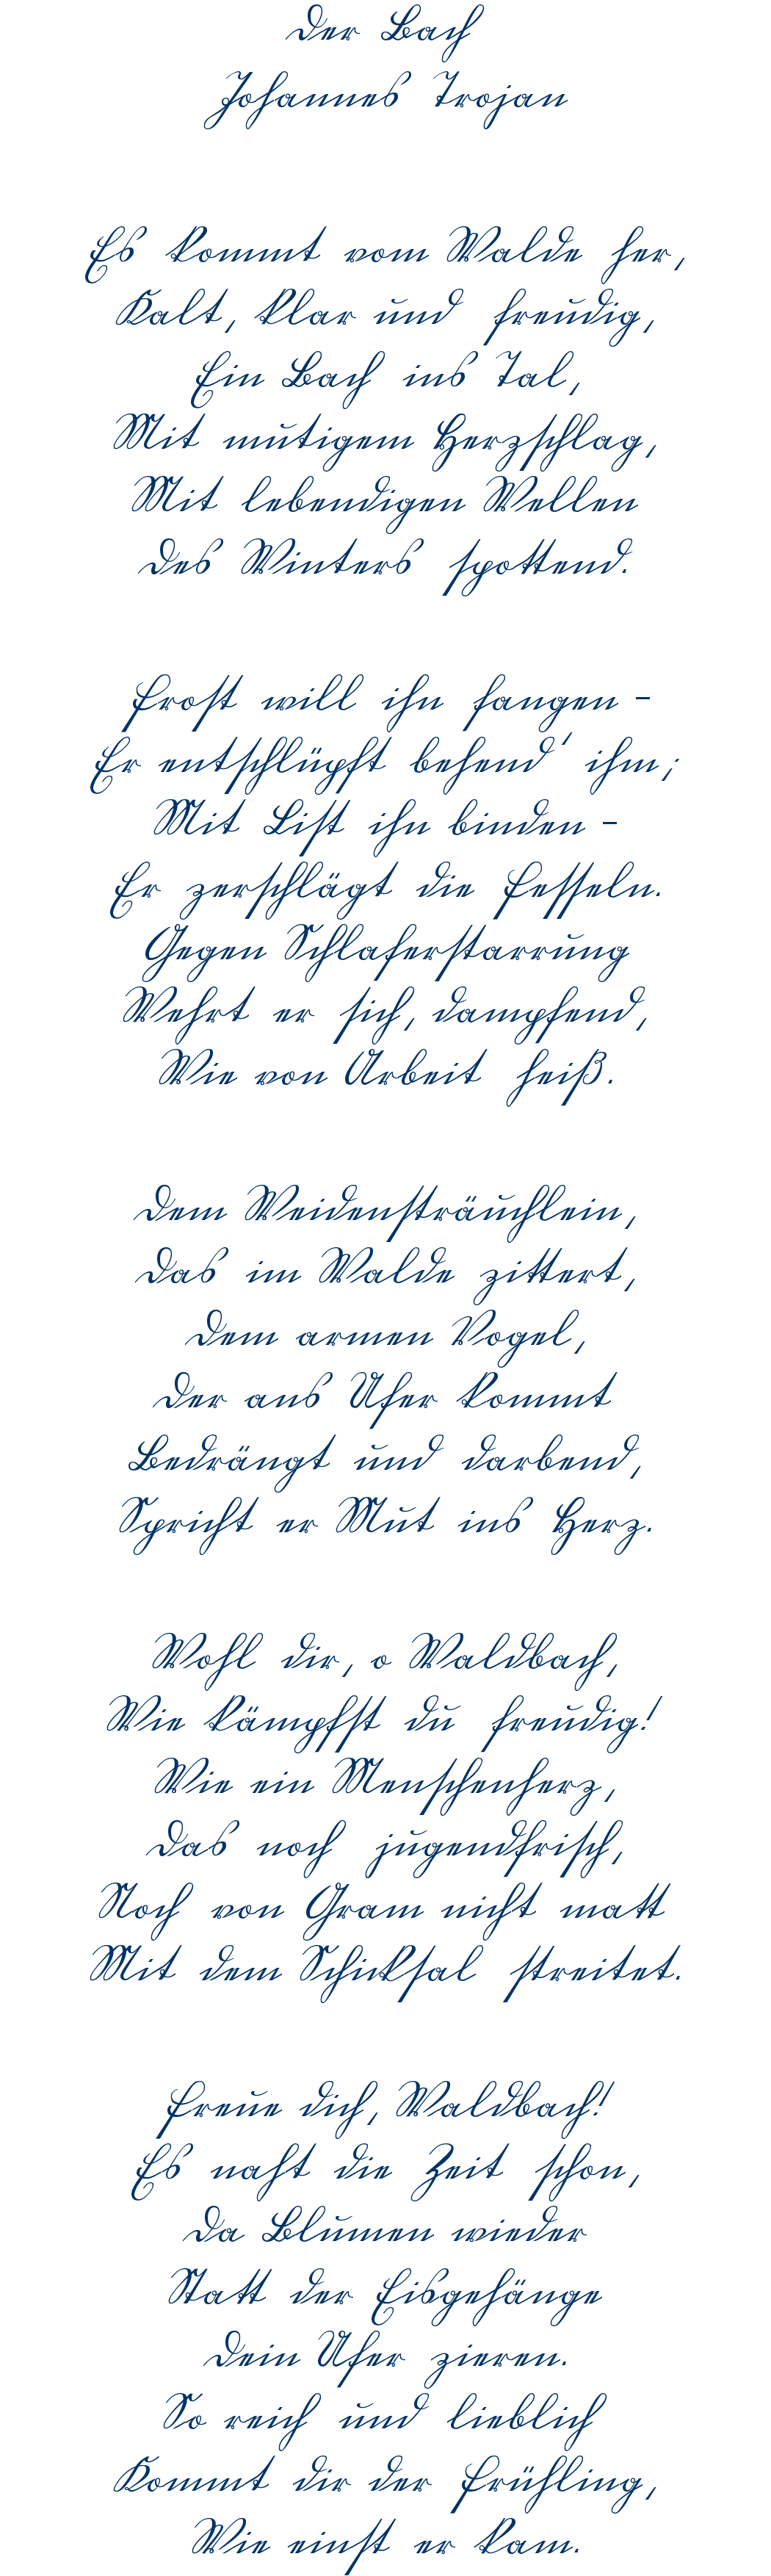 Der Bach
Johannes Trojan
Es kommt vom Walde her,
Kalt, klar und freudig,
Ein Bach ins Tal,
Mit mutigem Herzschlag,
Mit lebendigen Wellen
Des Winters spottend.
Frost will ihn fangen -
Er entschlüpft behend' ihm;
Mit List ihn binden -
Er zerschlägt die Fesseln.
Gegen Schlaferstarrung
Wehrt er sich, dampfend,
Wie von Arbeit heiß.
Dem Weidensträuchlein,
Das im Walde zittert,
Dem armen Vogel,
Der ans Ufer kommt
Bedrängt und darbend,
Spricht er Mut ins Herz.
Wohl dir, o Waldbach,
Wie kämpfst du freudig!
Wie ein Menschenherz,
Das noch jugendfrisch,
Noch von Gram nicht matt
Mit dem Schicksal streitet.
Freue dich, Waldbach!
Es naht die Zeit schon,
Da Blumen wieder
Statt der Eisgehänge
Dein Ufer zieren.
So reich und lieblich
Kommt dir der Frühling,
Wie einst er kam.